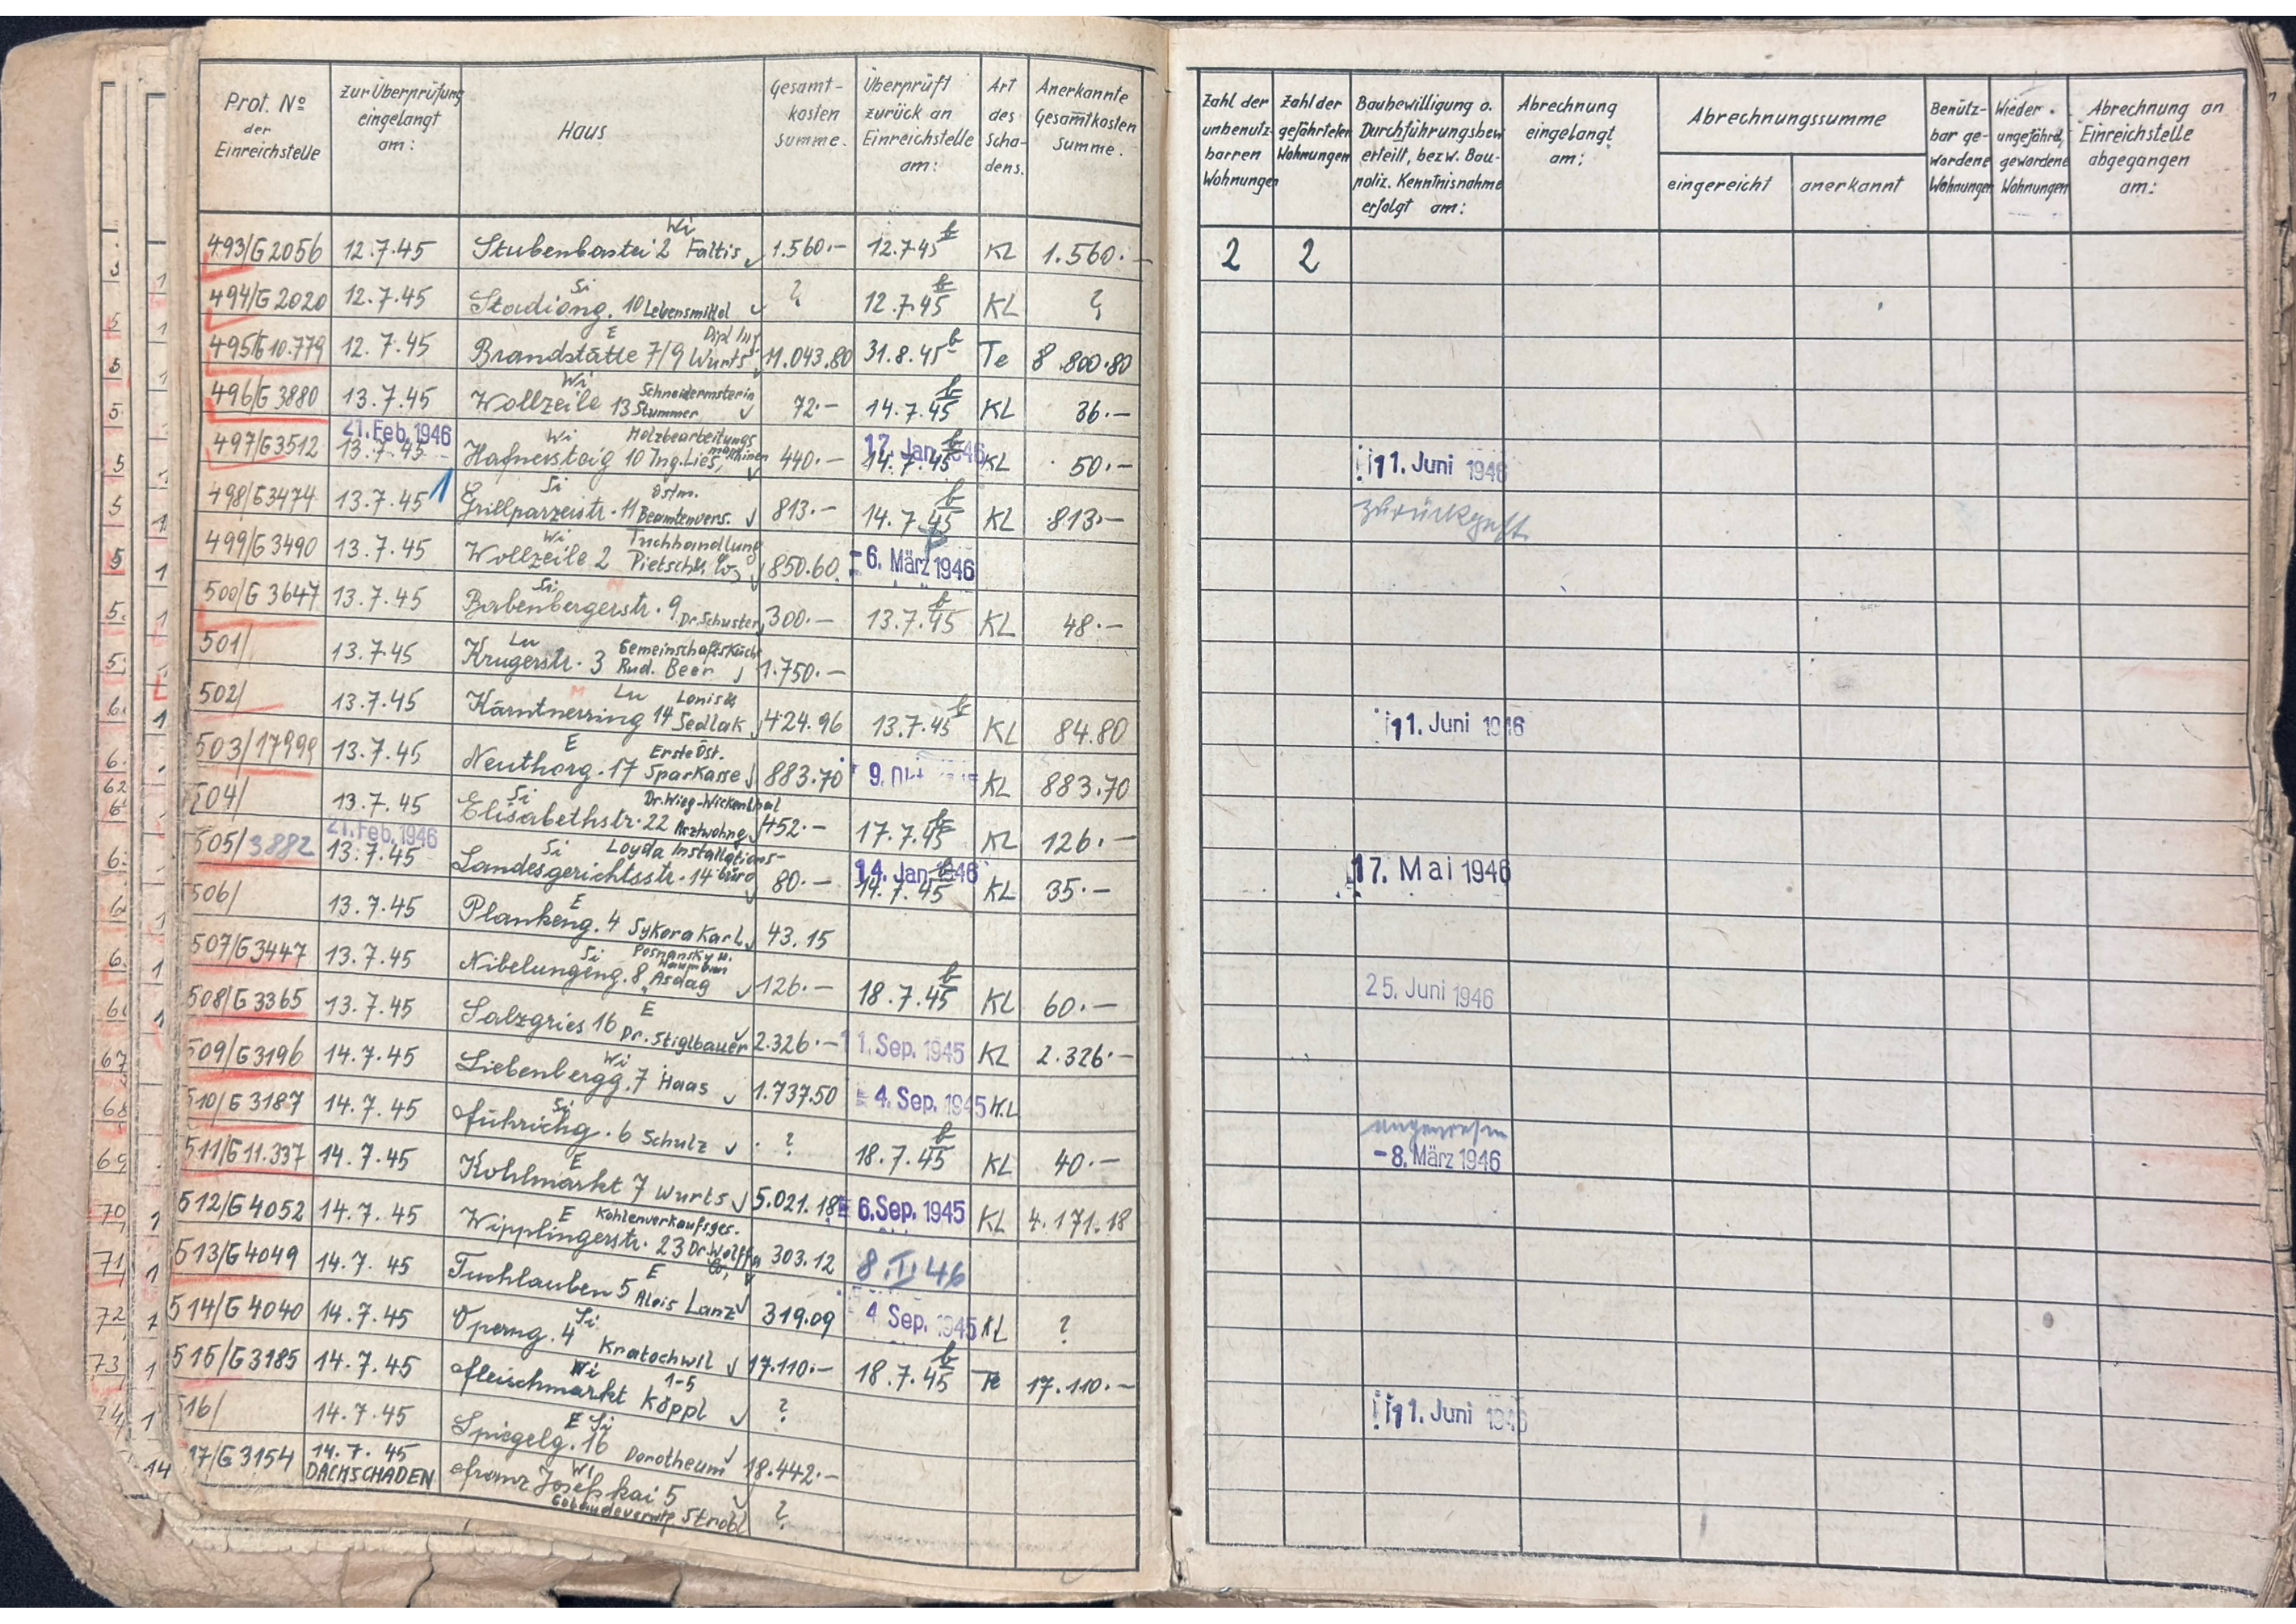 Prot. No der Einreichstelle | zur Überprüfung eingelangt am: | Haus | Gesamt-kosten summe. | Überprüft zurück an Einreichstelle am: | Art des Scha-dens. | Anerkannte Gesamtkosten Summe. | Zahl der unbenutz-barren Wohnungen | Zahl der gefährteten Wohnungen | Baubewilligung o. Durchführungsbew. erteilt, bezw. Bau-poliz. Kenntnisnahme erfolgt am: | Abrechnung eingelangt am: | Abrechnungssumme eingereicht | anerkannt | Benütz-bar ge-wordene Wohnungen | Wieder ungefährd. gewordene Wohnungen | Abrechnung an Einreichstelle abgegangen am:
493/G2056 12.7.45 Stubenbastei 2 Wi Faltis 1.560.- 12.7.45 KL 1.560.- 2 2
494/G2020 12.7.45 Stadiong. 10 Si Lebensmittel ? 12.7.45 KL ?
495/G10.779 12.7.45 Brandstätte 7/9 E Dipl Ing Wurts 11.043.80 31.8.45 Te 8.800.80
496/G3880 13.7.45 Wollzeile 13 Wi Schneidermsterin Stummer 72.- 14.7.45 KL 36.-
497/G3512 21. Feb. 1946 13.7.45 Hafnersteig 10 Wi Holzbearbeitungs maschinen Ing. Lies 440.- 17. Jan. 1946 14.7.45 KL 50.- 11. Juni 1946
498/G3474 13.7.45 Grillparzerstr. 11 Si Östm. Beamtenvers. 813.- 14.7.45 KL 813.-
499/G3490 13.7.45 Wollzeile 2 Wi Tuchhandlung Pietsch & Co 850.60 -6. März 1946
500/G3647 13.7.45 Babenbergerstr. 9 Si Dr. Schuster 300.- 13.7.45 KL 48.-
501/ 13.7.45 Krugerstr. 3 Lu Gemeinschaftsküche Rud. Beer 1.750.-
502/ 13.7.45 Kärntnerring 14 Lu Sedlak 424.96 13.7.45 KL 84.80 11. Juni 1946
503/17999 13.7.45 Neuthorg. 17 E Erste Öst. Sparkasse 883.70 9. Okt. KL 883.70
504/ 13.7.45 Elisabethstr. 22 Si Dr. Wieg-Wickenthal Arztwohng 452.- 17.7.45 KL 126.-
505/3882 21. Feb. 1946 13.7.45 Landesgerichtsstr. 14 Si Loyda Installations-büro 80.- 14. Jan. 1946 14.7.45 KL 35.- 17. Mai 1946
506/ 13.7.45 Plankeng. 4 E Sykora Karl 43.15
507/G3447 13.7.45 Nibelungeng. 8 Si Posnansky u. Asdag 126.- 18.7.45 KL 60.- 25. Juni 1946
508/G3365 13.7.45 Salzgries 16 E Dr. Stiglbauer 2.326.- 1. Sep. 1945 KL 2.326.-
509/G3196 14.7.45 Liebenbergg. 7 Wi Haas 1.737.50 -4. Sep. 1945 KL
510/G3187 14.7.45 Führichg. 6 Si Schulz ? 18.7.45 KL 40.- angewiesen -8. März 1946
511/G11.337 14.7.45 Kohlmarkt 7 E Wurts 5.021.18 6. Sep. 1945 KL 4.171.18
512/G4052 14.7.45 Wipplingerstr. 23 E Kohlenverkaufsges. Dr. Wolff & Co. 303.12 8.II.46
513/G4049 14.7.45 Tuchlauben 5 E Alois Lanz 319.09 4. Sep. 1945 KL ?
514/G4040 14.7.45 Operng. 4 Si Kratochwil 17.110.- 18.7.45 Te 17.110.-
515/G3185 14.7.45 Fleischmarkt 1-5 Wi Köppl ? 11. Juni 1946
516/ 14.7.45 Spiegelg. 16 E Si Dorotheum 18.442.-
17/G3154 14.7.45 DACHSCHADEN Franz Josefskai 5 Wi Gebäudeverwtg Strobl ?